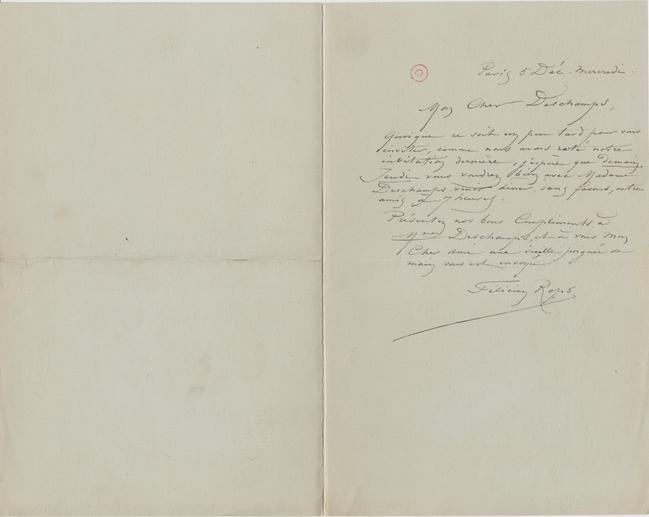 Paris 5 Déc. Mercredi.
Mon Cher Deschamps,
Quoique ce soit un peu tard pour vous
inviter, comme nous avons raté notre
invitation dernière, j'espère que demain
Jeudi vous voudrez bien avec Madame
Deschamps venir diner, sans façons, entre
amis à 7 heures.
Présentez nos bons Compliments à
Mme Deschamps, et à vous Mon
Cher ami une vieille poignée de
main vous est envoyée
Félicien Rops